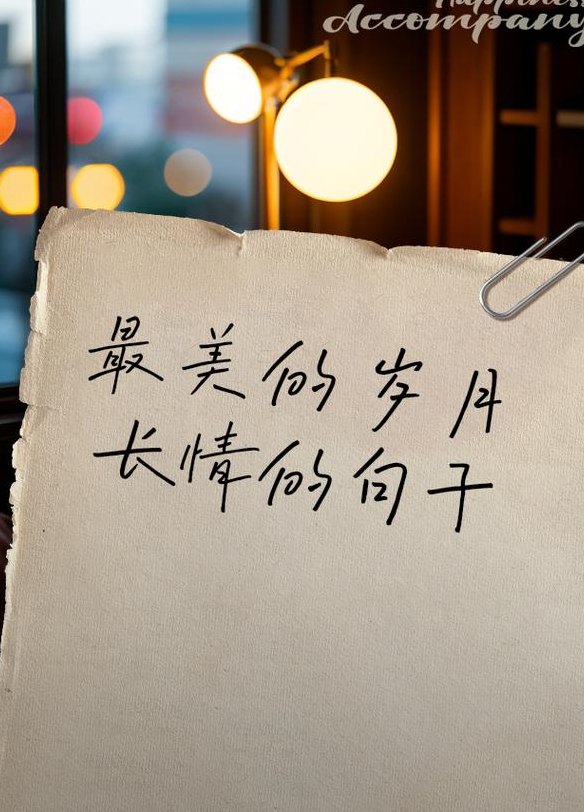 Happiness
Accompany
最美的岁月
长情的句子